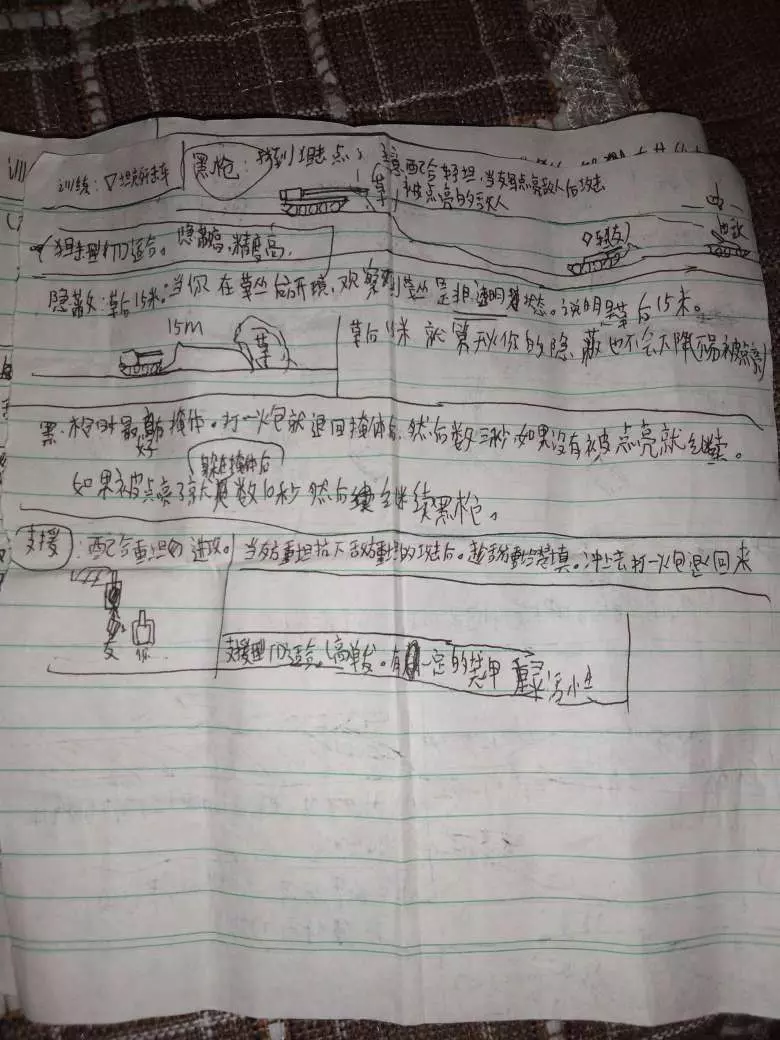 训练：▽坦克歼击车
黑枪：找到狙击点，
草
注意配合轻坦，当友坦点亮敌人后攻击
被点亮的敌人
狙击型TD适合。隐蔽高，精度高，
轻友
敌
隐蔽：草后15米：当你在草丛后开镜，观察到草丛是非透明状态。说明是草后15米。
15m
草
草后15米就算开火你的隐蔽也不会下降（不易被点亮）
黑枪时最好有掩体。打一火包就退回掩体后，然后数三秒如果没有被点亮就继续。
躲在掩体后
如果被点亮了就数10秒然后继续黑枪。
支援：配合重坦的进攻。
当友方重坦抗下敌方重坦的攻击后。趁敌方重坦装填。冲上去打一火包退回来
友 你
支援型TD适合，高单发。有一定的装甲